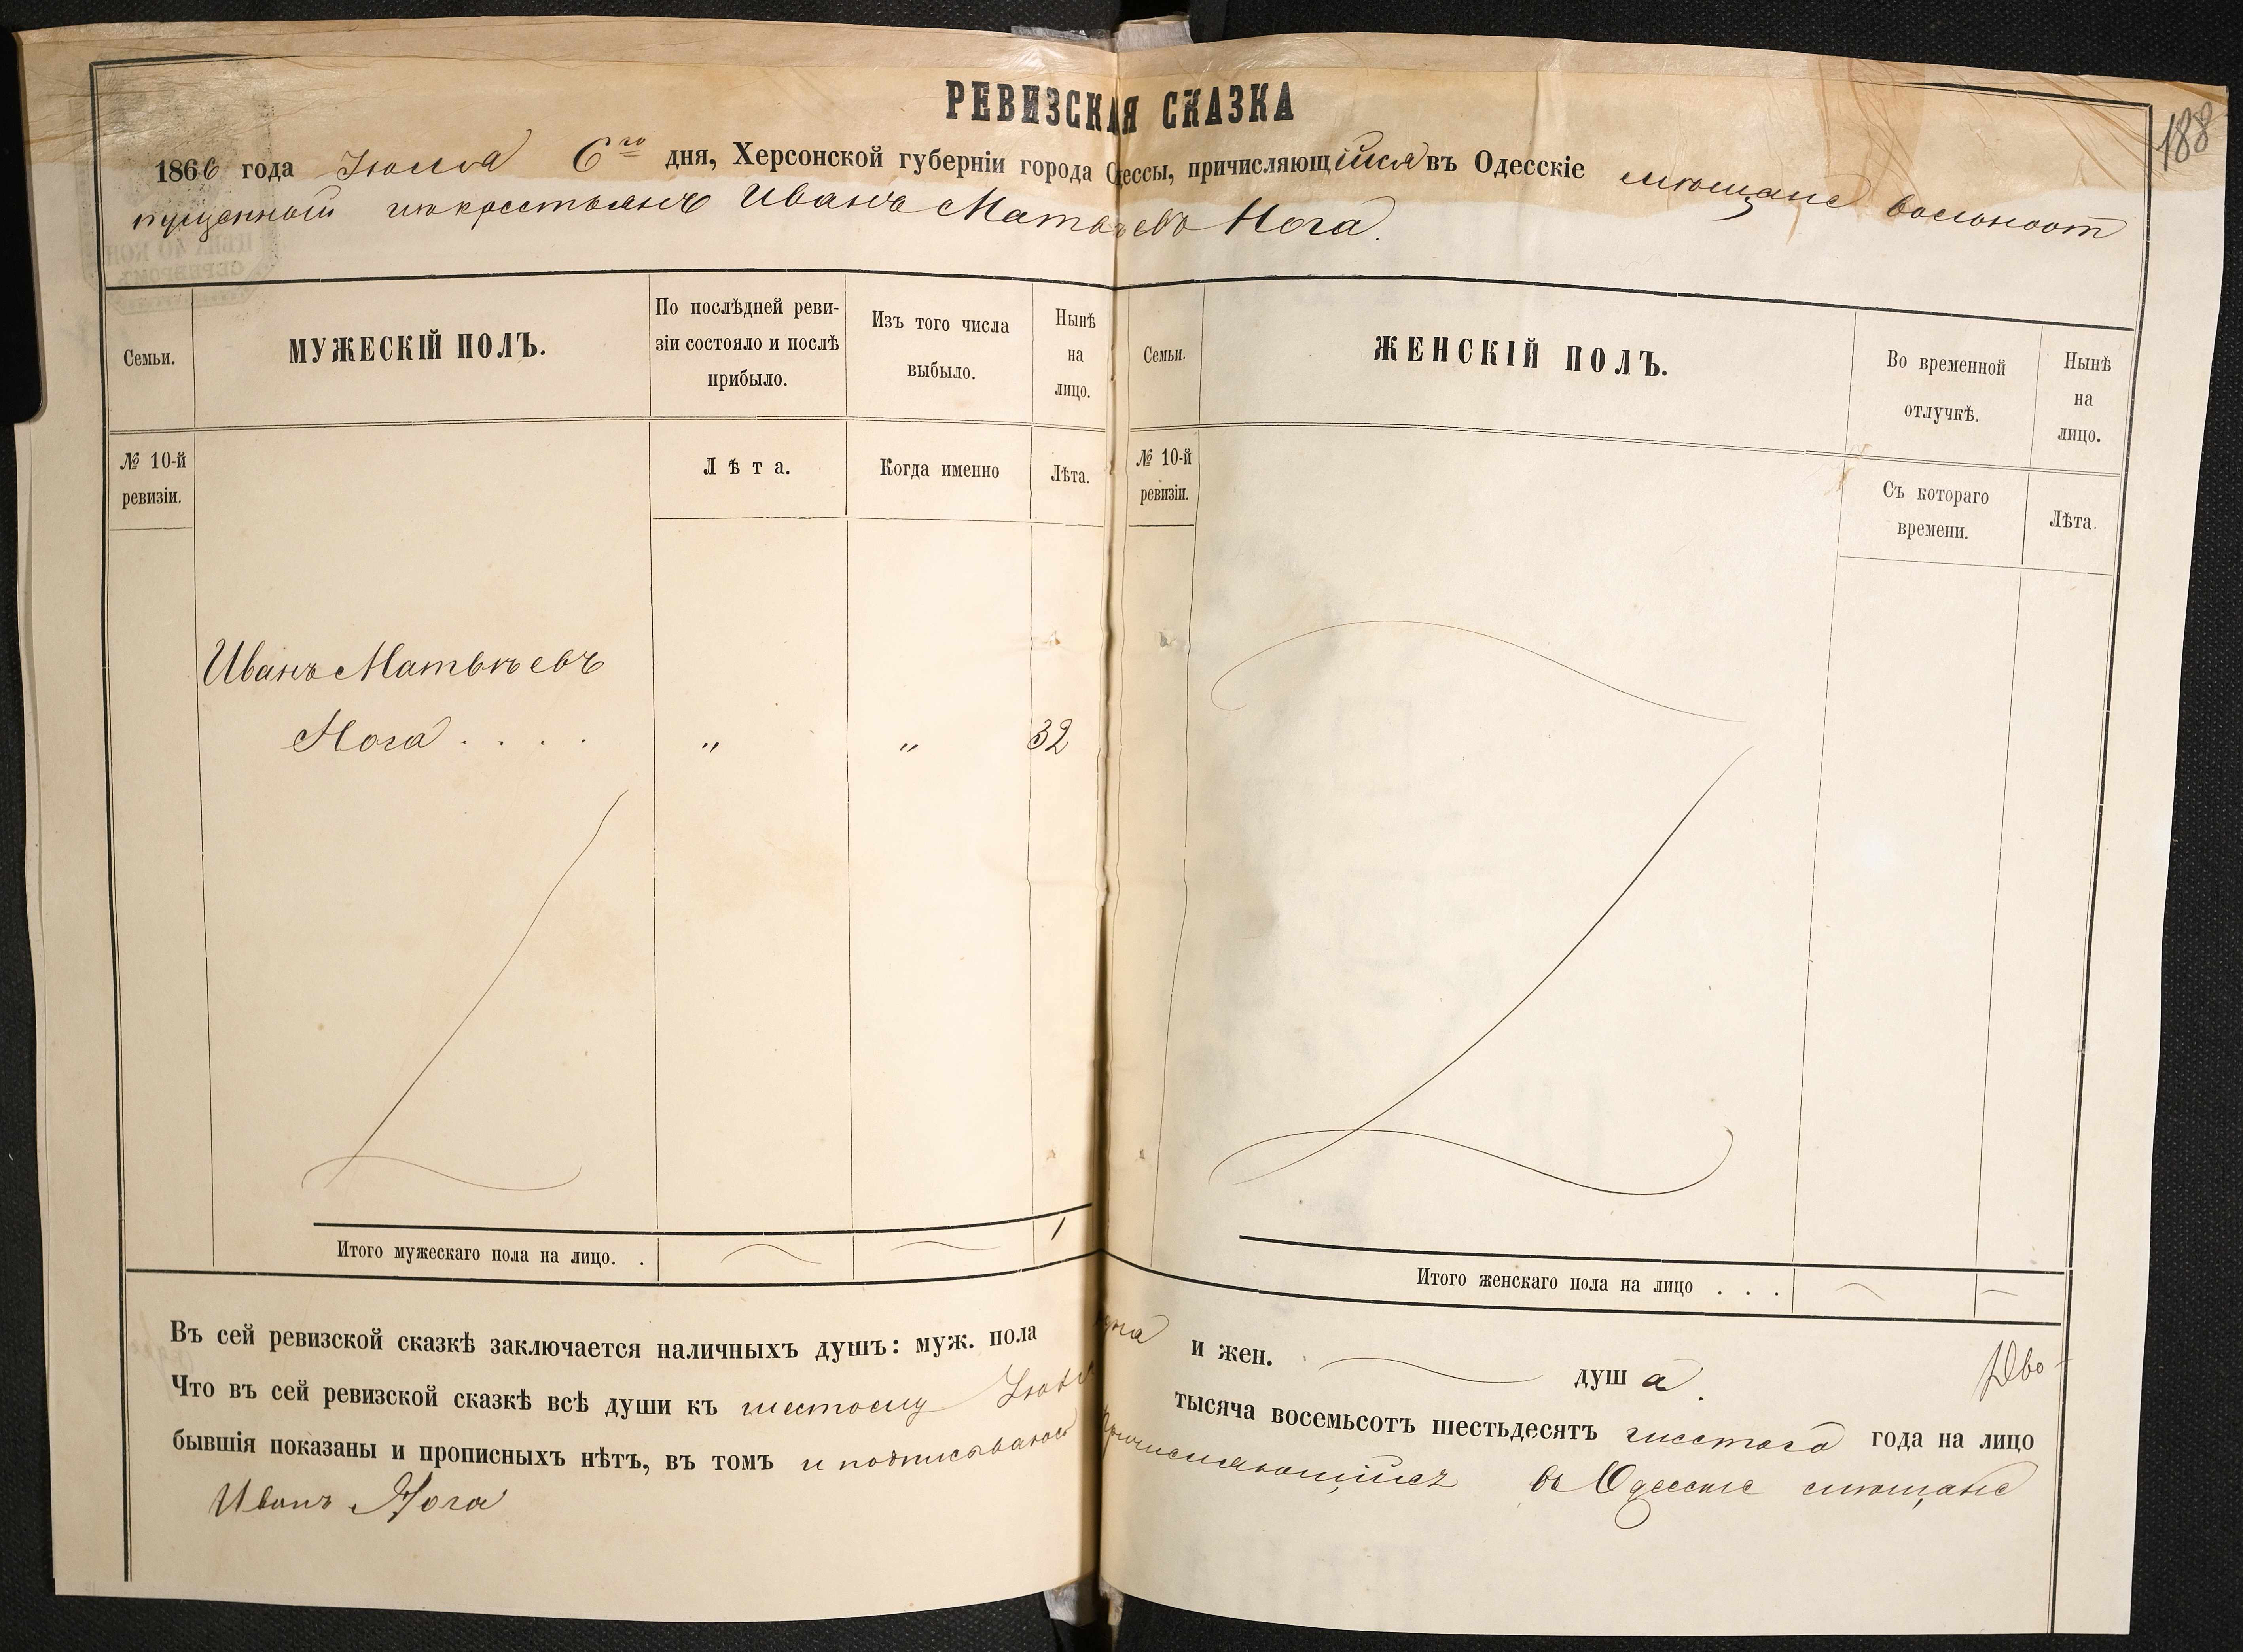 188
РЕВИЗСКАЯ СКАЗКА
1866 года Іюля 6го дня, Херсонской губерніи города Одессы, причисляющійся въ Одесскіе мѣщане вольноот
пущенный изъ крестьянъ Иванъ Матвѣевъ Нога.
Семьи.
МУЖЕСКІЙ ПОЛЪ.
По послѣдней реви-
зіи состояло и послѣ
прибыло.
Изъ того числа
выбыло.
Нынѣ
на
лицо.
Семьи.
ЖЕНСКІЙ ПОЛЪ.
Во временной
отлучкѣ.
Нынѣ
на
лицо.
№ 10-й
ревизіи.
Лѣта.
Когда именно
Лѣта.
№ 10-й
ревизіи.
Съ котораго
времени.
Лѣта.
Иванъ Матвѣевъ
Нога . . . . " " 32
Итого мужескаго пола на лицо. . 1
Итого женскаго пола на лицо . . .
Въ сей ревизской сказкѣ заключается наличныхъ душъ: муж. пола одна и жен. душа.
Что въ сей ревизской сказкѣ всѣ души къ шестому Іюля тысяча восемьсотъ шестьдесятъ шестаго года на лицо
бывшія показаны и прописныхъ нѣтъ, въ томъ и подписываюсь Причисляющійся въ Одесскіе мѣщане
Иванъ Нога